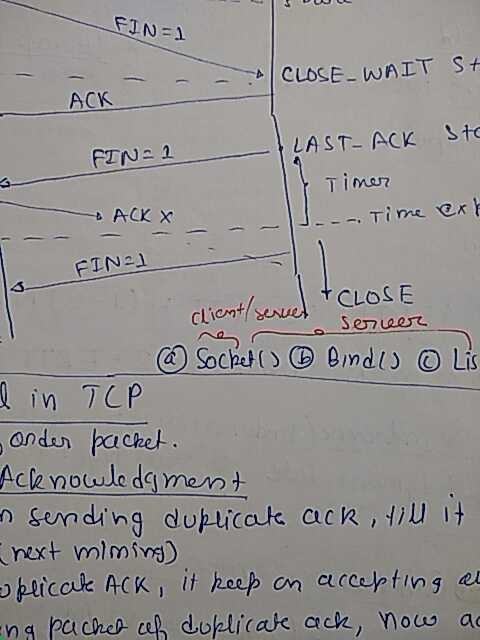 FIN=1
CLOSE_WAIT St
ACK
LAST_ACK Sta
FIN=1
Timer
ACK x
Time exp
FIN=1
CLOSE
client/server
server
(a) Socket() (b) Bind() (c) Lis
in TCP
order packet.
Acknowledgment
n sending duplicate ack, till it
(next miming)
uplicate ACK, it keep on accepting al
ng packet of duplicate ack, now ac